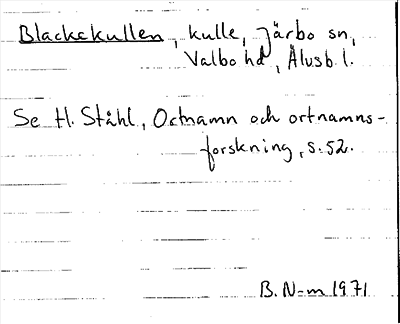 Blackekullen, kulle, Järbo sn,
Valbo hd, Älvsb. l.
Se H. Ståhl, Ortnamn och ortnamns-
forskning, s. 52.
B. N-m 1971